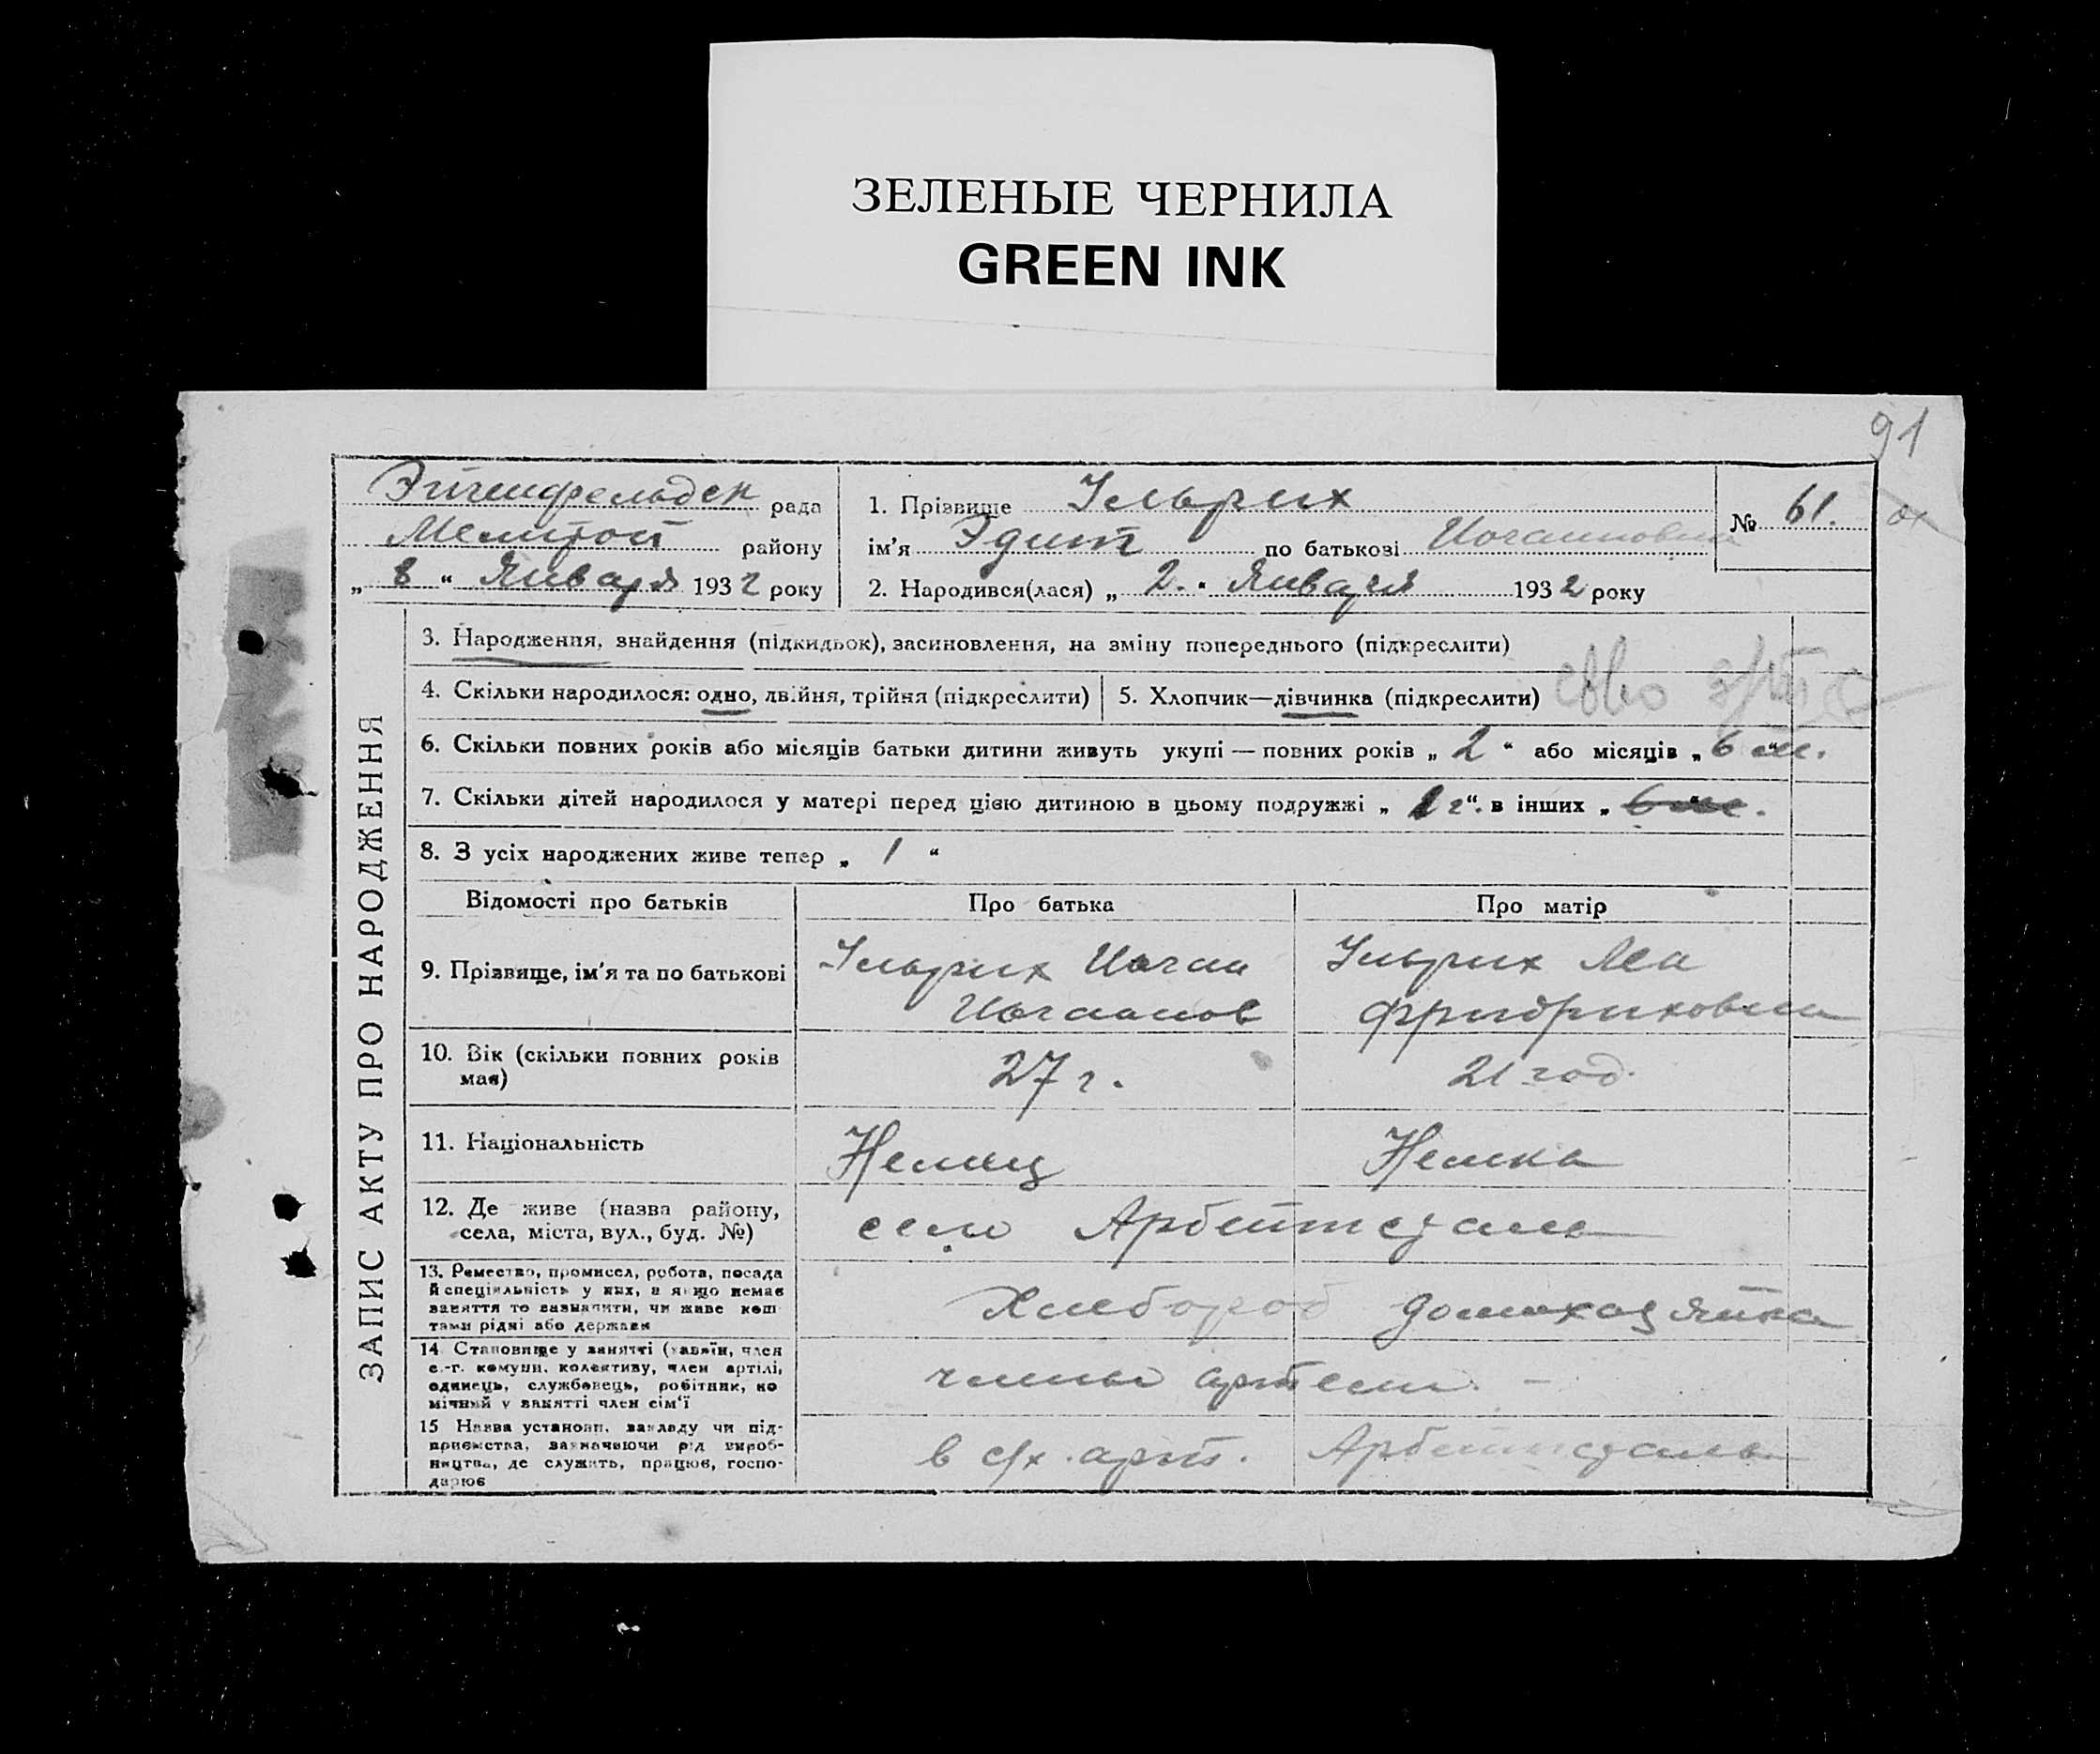 ЗЕЛЕНЫЕ ЧЕРНИЛА
GREEN INK
91
Эйгенфельдск рада
Мелитоп району
„ 8 “ Января 1932 року
1. Прізвище Ульрих
ім’я Эдит по батькові Иогановна
№ 61.
2. Народився(лася) „ 2. “ Января 1932 року
ЗАПИС АКТУ ПРО НАРОДЖЕННЯ
3. Народження, знайдення (підкидьок), засиновлення, на зміну попереднього (підкреслити)
4. Скільки народилося: одно, двійня, трійня (підкреслити)
5. Хлопчик—дівчинка (підкреслити)
6. Скільки повних років або місяців батьки дитини живуть укупі — повних років „ 2 “ або місяців „ 6 м.
7. Скільки дітей народилося у матері перед цією дитиною в цьому подружжі „ “ в інших „
8. З усіх народжених живе тепер „ 1 “
Відомості про батьків
Про батька
Про матір
9. Прізвище, ім’я та по батькові
Ульрих Иоган
Ульрих
Фридриховна
10. Вік (скільки повних років має)
27 г.
21 год.
11. Національність
Немец
Немка
12. Де живе (назва району, села, міста, вул., буд. №)
село Арбейтсталь
13. Ремество, промисел, робота, посада й спеціяльність у них, а якщо немає заняття то зазначити, чи живе коштами рідні або держави
Хлебороб
домохозяйка
14 Становище у занятті (хазяїн, член с.-г. комуни, колективу, член артілі, одинець, службовець, робітник, помічний у занятті член сім’ї
члены артели. —
15 Назва установи, закладу чи підприємства, зазначаючи рід виробництва, де служить, працює, господарює
в с/х. арт. Арбейтсталь